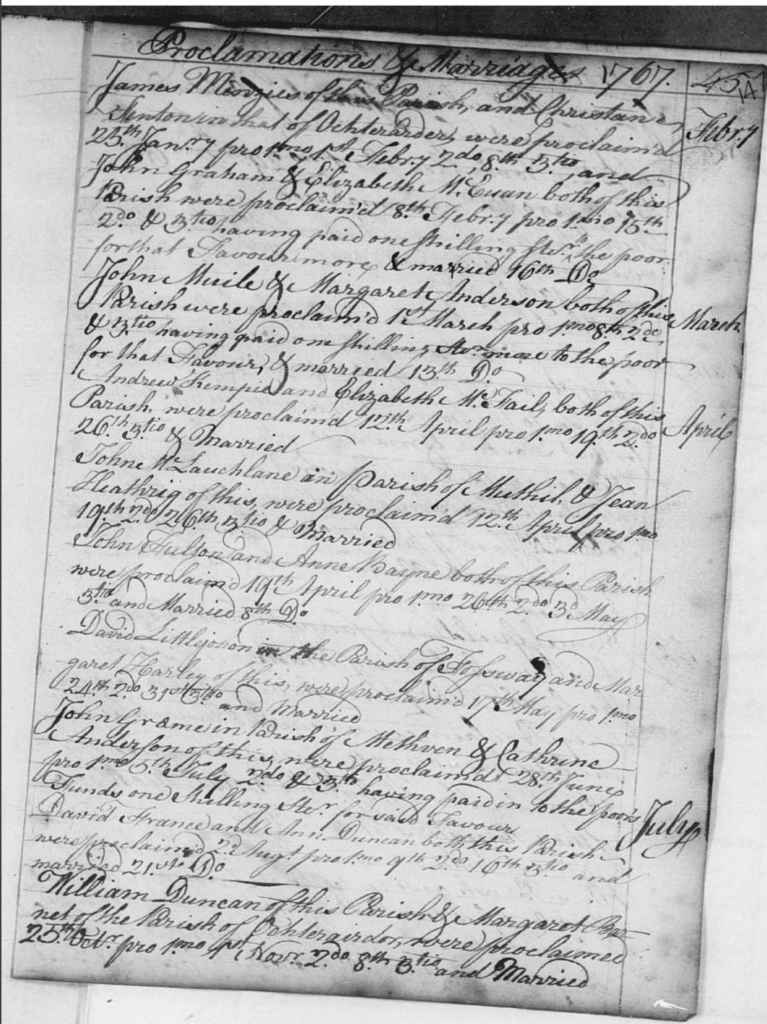 Proclamations & Marriages 1767. 45
James Menzies of this Parish, and Christane
Fenton in that of Ochterarder, were proclaim'd Febr.y
25th Janr.y pro 1mo 1st Febr.y 2do, 8th 3tio, and
John Graham & Elizabeth McEuan both of this
Parish were proclaim'd 8th Febr.y pro 1mo 15th
2do & 3tio having paid one shilling Ster. to the poor
for that Favour more & married 16th Do
John Muile & Margaret Anderson both of this
Parish were proclaim'd 1st March pro 1mo 8th 2do March
& 3tio having paid one shilling Ster. more to the poor
for that Favour, & married 13th Do
Andrew and Elizabeth McFail, both of this
Parish, were proclaimd 12th April pro 1mo 19th 2do April
26th 3tio & Married
John McLauchlane in Parish of Muthil. & Jean
Heathrig of this, were proclaim'd 12th April pro 1mo
19th 2do 26th 3tio & Married
John and Anne Bayne both of this Parish
were proclaim'd 19th April pro 1mo 26th 2do 3d May
3tio and Married 8th Do
David Littlejohn in the Parish of Fossway and Mar
garet Harley of this, were proclaim'd 17th May pro 1mo
24th 2do 31st 3tio and Married
John Grame in Parish of Methven & Cathrine
Anderson of this, were proclaim'd 28th June
pro 1mo 5th July 2do & 3th having paid in to the poor's
Funds one Shilling Ster. for said Favour July
David France and Ann Duncan both this Parish
were proclaimed 2d Augt pro 1mo 9th 2do 16th 3tio and
married 21st Do
William Duncan of this Parish & Margaret
net of the Parish of Ochterairdor, were proclaimed
25th Octr pro 1mo 1st Novr 2do 8th 3tio and Married